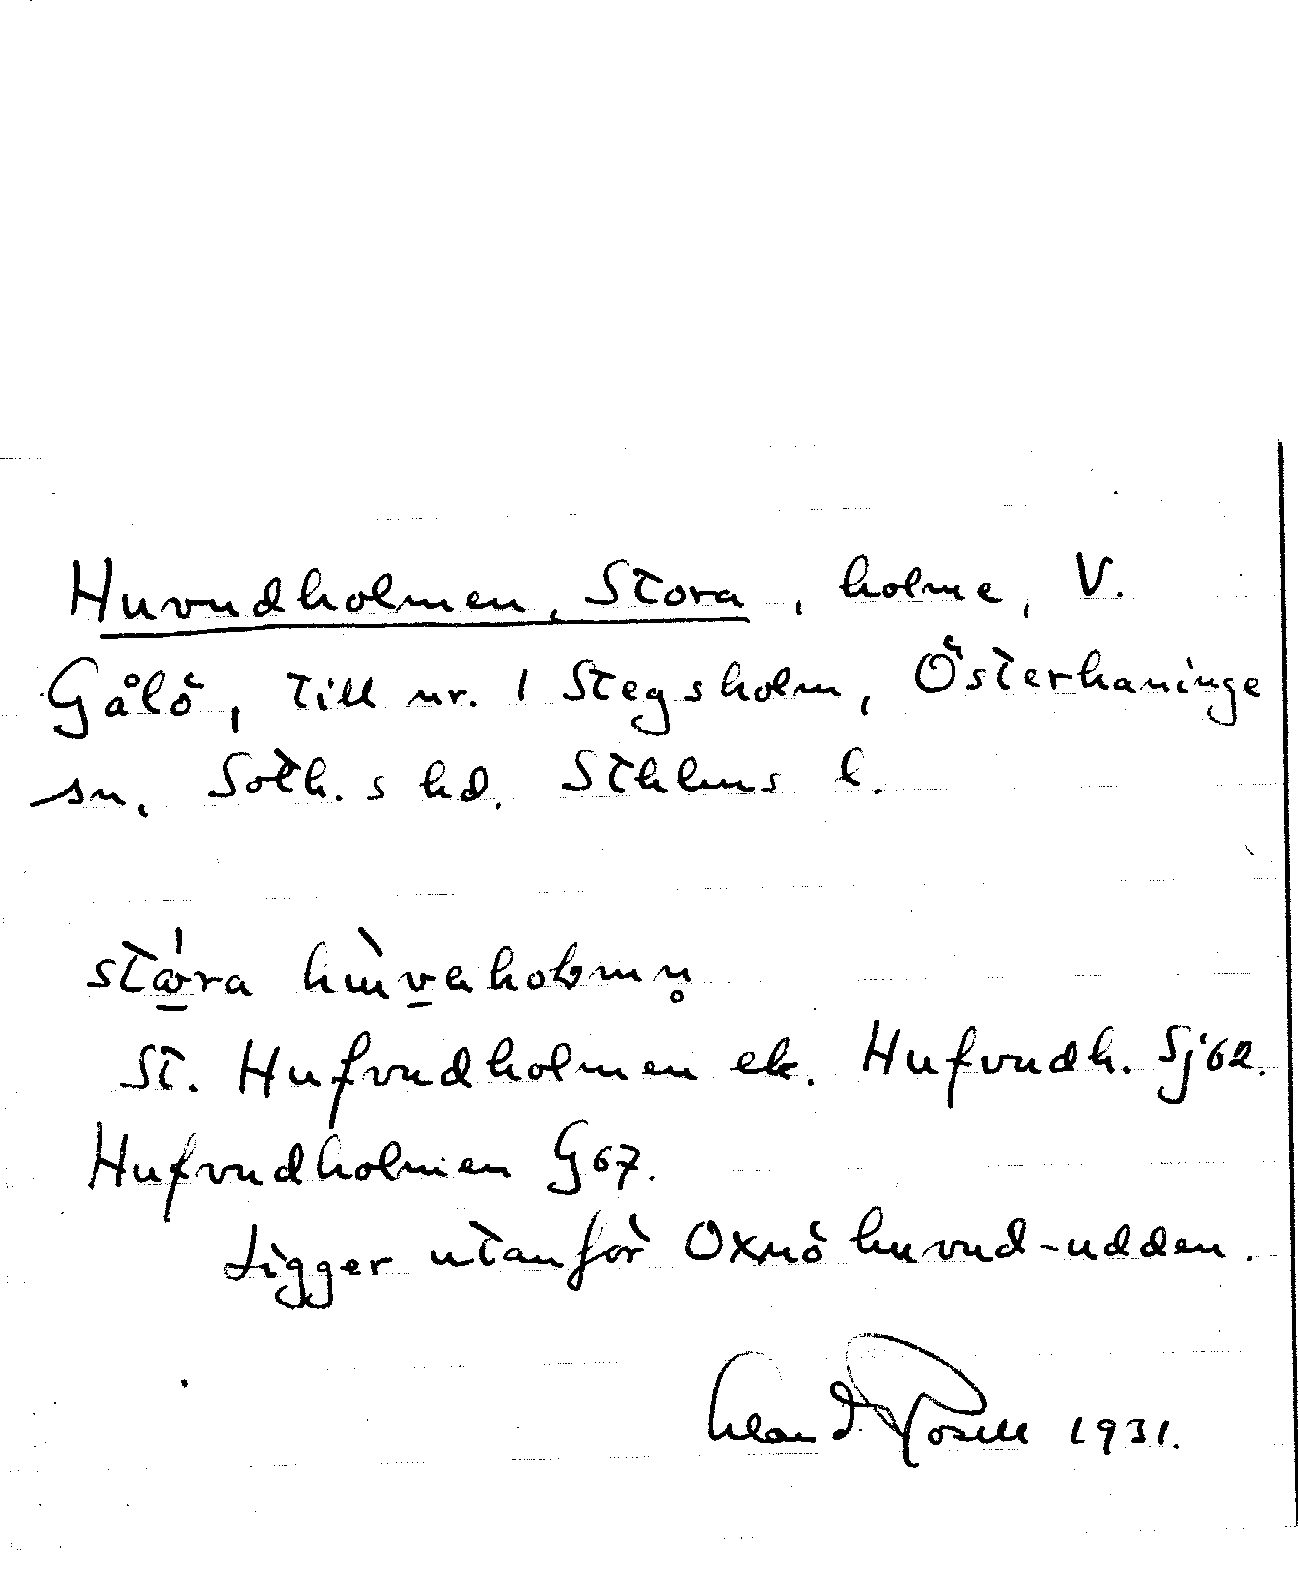 Huvudholmen, Stora, holme, V.
Gålö, till nr. 1 Stegsholm, Österhaninge
sn. Soth.s hd. Sthlms l.
St. Hufvudholmen ek. Hufvudh. Sj 62.
Hufvudholmen G 67.
Ligger utanför Oxnö huvud-udden.
1931.